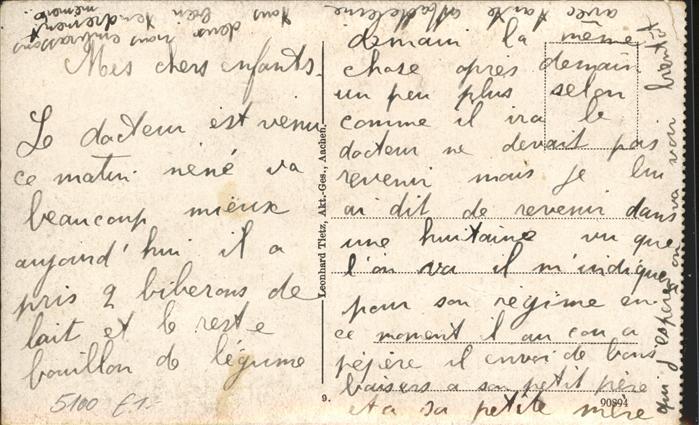 Mes chers enfants.
Le docteur est venu
ce matin néné va
beaucoup mieux
aujourd'hui il a
pris 2 biberons de
lait et le reste
bouillon de légume
demain la même
chose après demain
un peu plus selon
comme il ira le
docteur ne devait pas
revenir mais je lui
ai dit de revenir dans
une huitaine vu que
l'on va il m'indiquera
pour son régime en
ce moment l au cou a
pépère il envoi de bons
baisers a son petit père
et a sa petite mère
qui j'espère on va voir
tous deux nous embrassons
tous bien tendrement
mémère
avec tante Madeleine
Leonhard Tietz, Akt.-Ges., Aachen.
9.
90894
5100 £1-